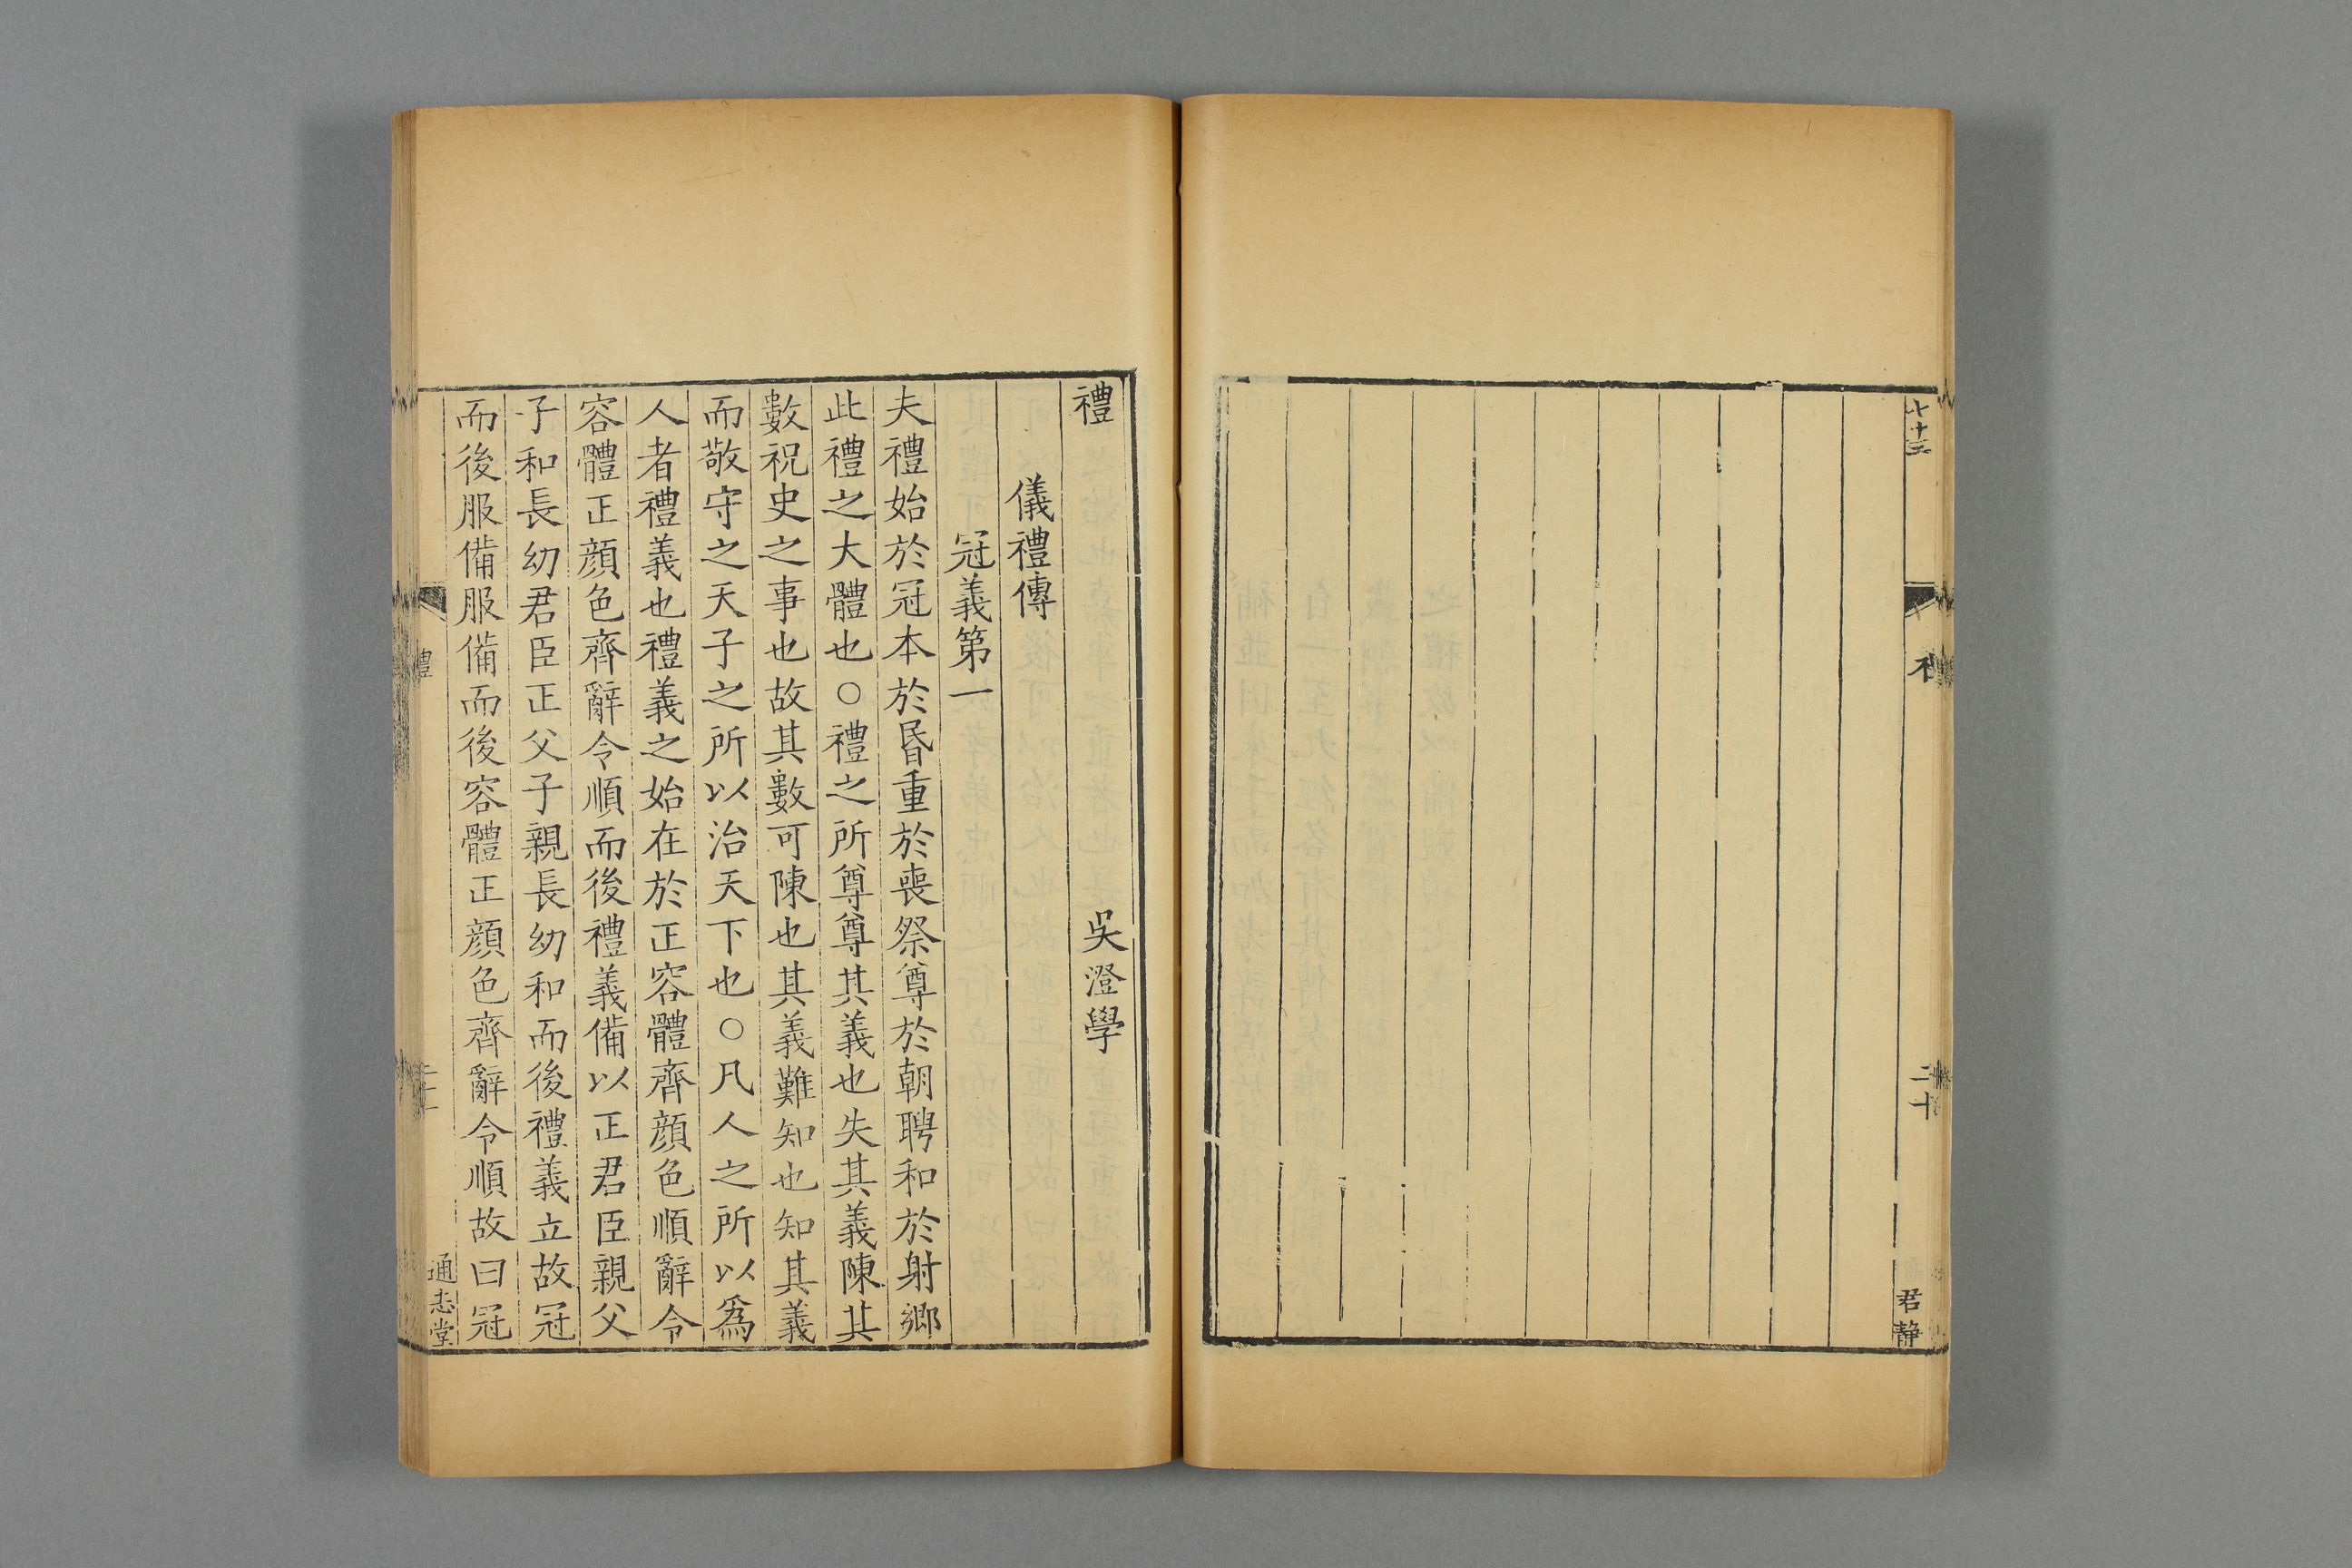 君靜
二十
禮　吳澄學
儀禮傳
冠義第一
夫禮始於冠本於昬重於喪祭尊於朝聘和於射鄉
此禮之大體也○禮之所尊尊其義也失其義陳其
數祝史之事也故其數可陳也其義難知也知其義
而敬守之天子之所以治天下也○凡人之所以爲
人者禮義也禮義之始在於正容體齊顔色順辭令
容體正顔色齊辭令順而後禮義備以正君臣親父
子和長幼君臣正父子親長幼和而後禮義立故冠
而後服備服備而後容體正顔色齊辭令順故曰冠
通志堂